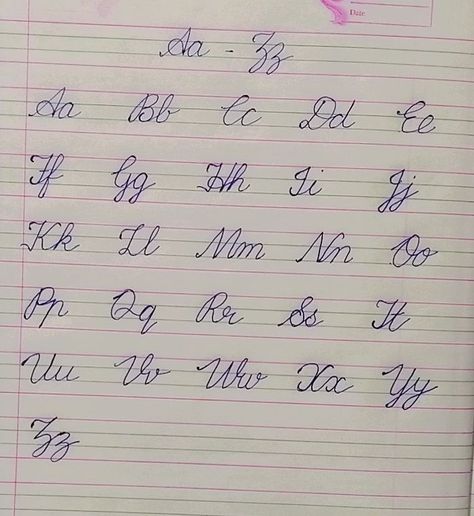 Date
Aa - Zz
Aa Bb Cc Dd Ee
Ff Gg Hh Ii Jj
Kk Ll Mm Nn Oo
Pp Qq Rr Ss Tt
Uu Vv Ww Xx Yy
Zz